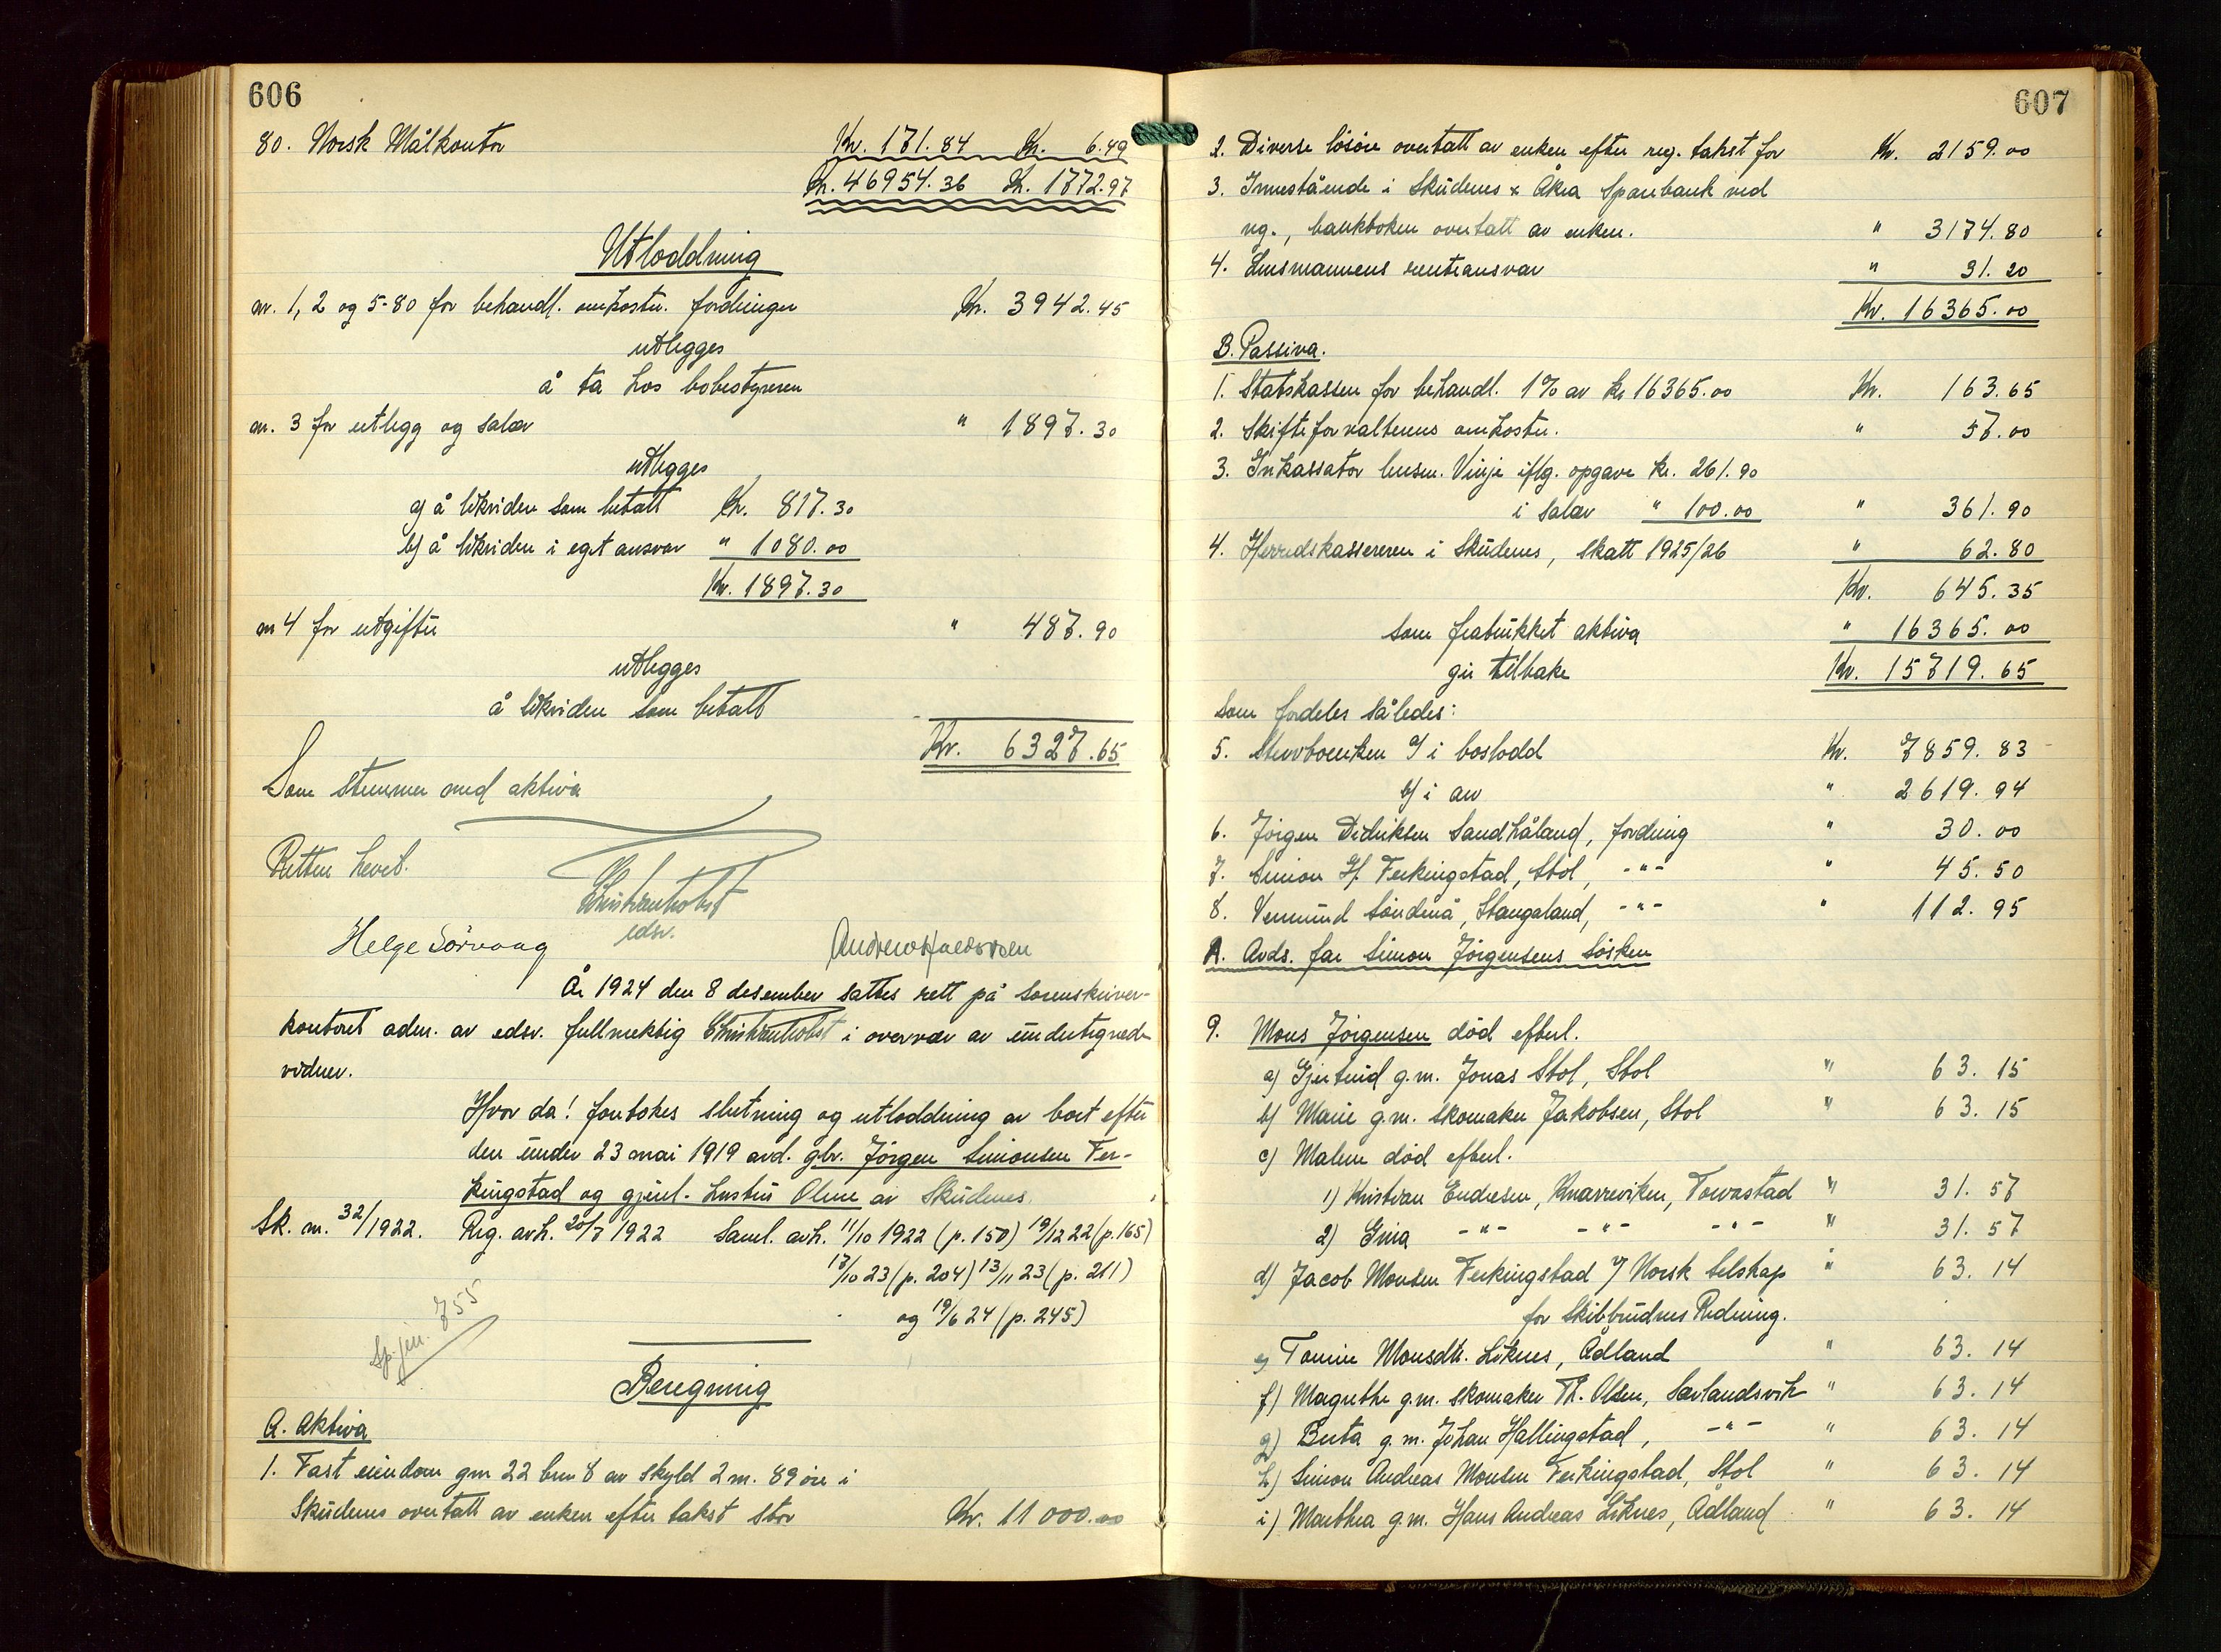 606
80. Norsk Målkontor Kr. 171.84 Kr. 6.49
Kr. 46954.36 Kr. 1772.97
Utloddning
nr. 1, 2 og 5-80 for behandl. omkostn. fordringer Kr. 3942.45
utlegges
å ta hos bobestyreren
nr. 3 for utlegg og salær " 1897.30
utlegges
a) å likviden som betalt Kr. 817.30
b) å likviden i eget ansvar " 1080.00
Kr. 1897.30
nr 4 for utgifter " 487.90
utlegges
å likviden som betalt
Kr. 6327.65
Som stemmer med aktiva
Retten hevet.
Christian Holst
edsv.
Helge Sörvaag
År 1924 den 8 desember sattes rett på sorenskriver-
kontoret adm. av edsv. fullmektig Christian Holst i overvær av undertegnede
vidner.
Hvor da! foretokes slutning og utloddning av boet efter
den under 23 mai 1919 avd. gbr. Jörgen Simonsen Fer-
kingstad og gjenl. hustru Oline av Skudenes
Sk. nr. 32/1922. Reg. avh. 20/7 1922 Saml. avh. 11/10 1922 (p. 150) 19/12 22 (p. 165)
17/10 23 (p. 204) 13/11 23 (p. 211)
og 19/6 24 (p. 245)
Sp. jur. 755
Beregning
A. Aktiva
1. Fast eiendom gnr 22 bnr 8 av skyld 2 m. 89 öre i
Skudenes overtatt av enken efter takst stor Kr. 11 000.00
607
2. Diverse lösöre overtatt av enken efter reg. takst for Kr. 2159.00
3. Innestående i Skudenes & Åkra Sparebank ved
reg., bankboken overtatt av enken. " 3174.80
4. Lensmannens renteansvar " 31.20
Kr. 16365.00
B. Passiva.
1. Statskassen for behandl. 1% av kr 16365.00 Kr. 163.65
2. Skifteforvalterens omkostn. " 57.00
3. Inkassator lensm. Vinje iflg. opgave kr. 261.90
i salær " 100.00 " 361.90
4. Herredskassereren i Skudenes, skatt 1925/26 " 62.80
Kr. 645.35
som fratrukket aktiva " 16365.00
gir tilbake Kr. 15719.65
Som fordeles således:
5. Stervboenken a) i boslodd Kr. 7859.83
b) i arv " 2619.94
6. Jörgen Didriksen Sandhåland, fordring " 30.00
7. Simon H. Ferkingstad, Stol, -"- " 45.50
8. Vermund Söndenå, Stangaland, -"- " 112.95
A. Avds. far Simon Jörgensens Sösken
9. Mons Jörgensen död efterl.
a) Gjertrud g.m. Jonas Stol, Stol " 63.15
b) Marie g.m. skomaker Jakobsen, Stol " 63.15
c) Malene död efterl.
1) Kristian Endresen, Knarreviken, Torvastad " 31.57
2) Gina -"- -"- -"- " 31.57
d) Jacob Monsen Ferkingstad v/ Norsk Selskap " 63.14
for Skibbrudnes Redning.
e) Tomine Monsdtr. Liknes, Ådland " 63.14
f) Magrethe g.m. skomaker Th. Olsen, Sævlandsvik " 63.14
g) Berta g.m. Johan Hallingstad, -"- " 63.14
h) Simon Andreas Monsen Ferkingstad, Stol " 63.14
i) Marthea g.m. Hans Andreas Liknes, Ådland " 63.14